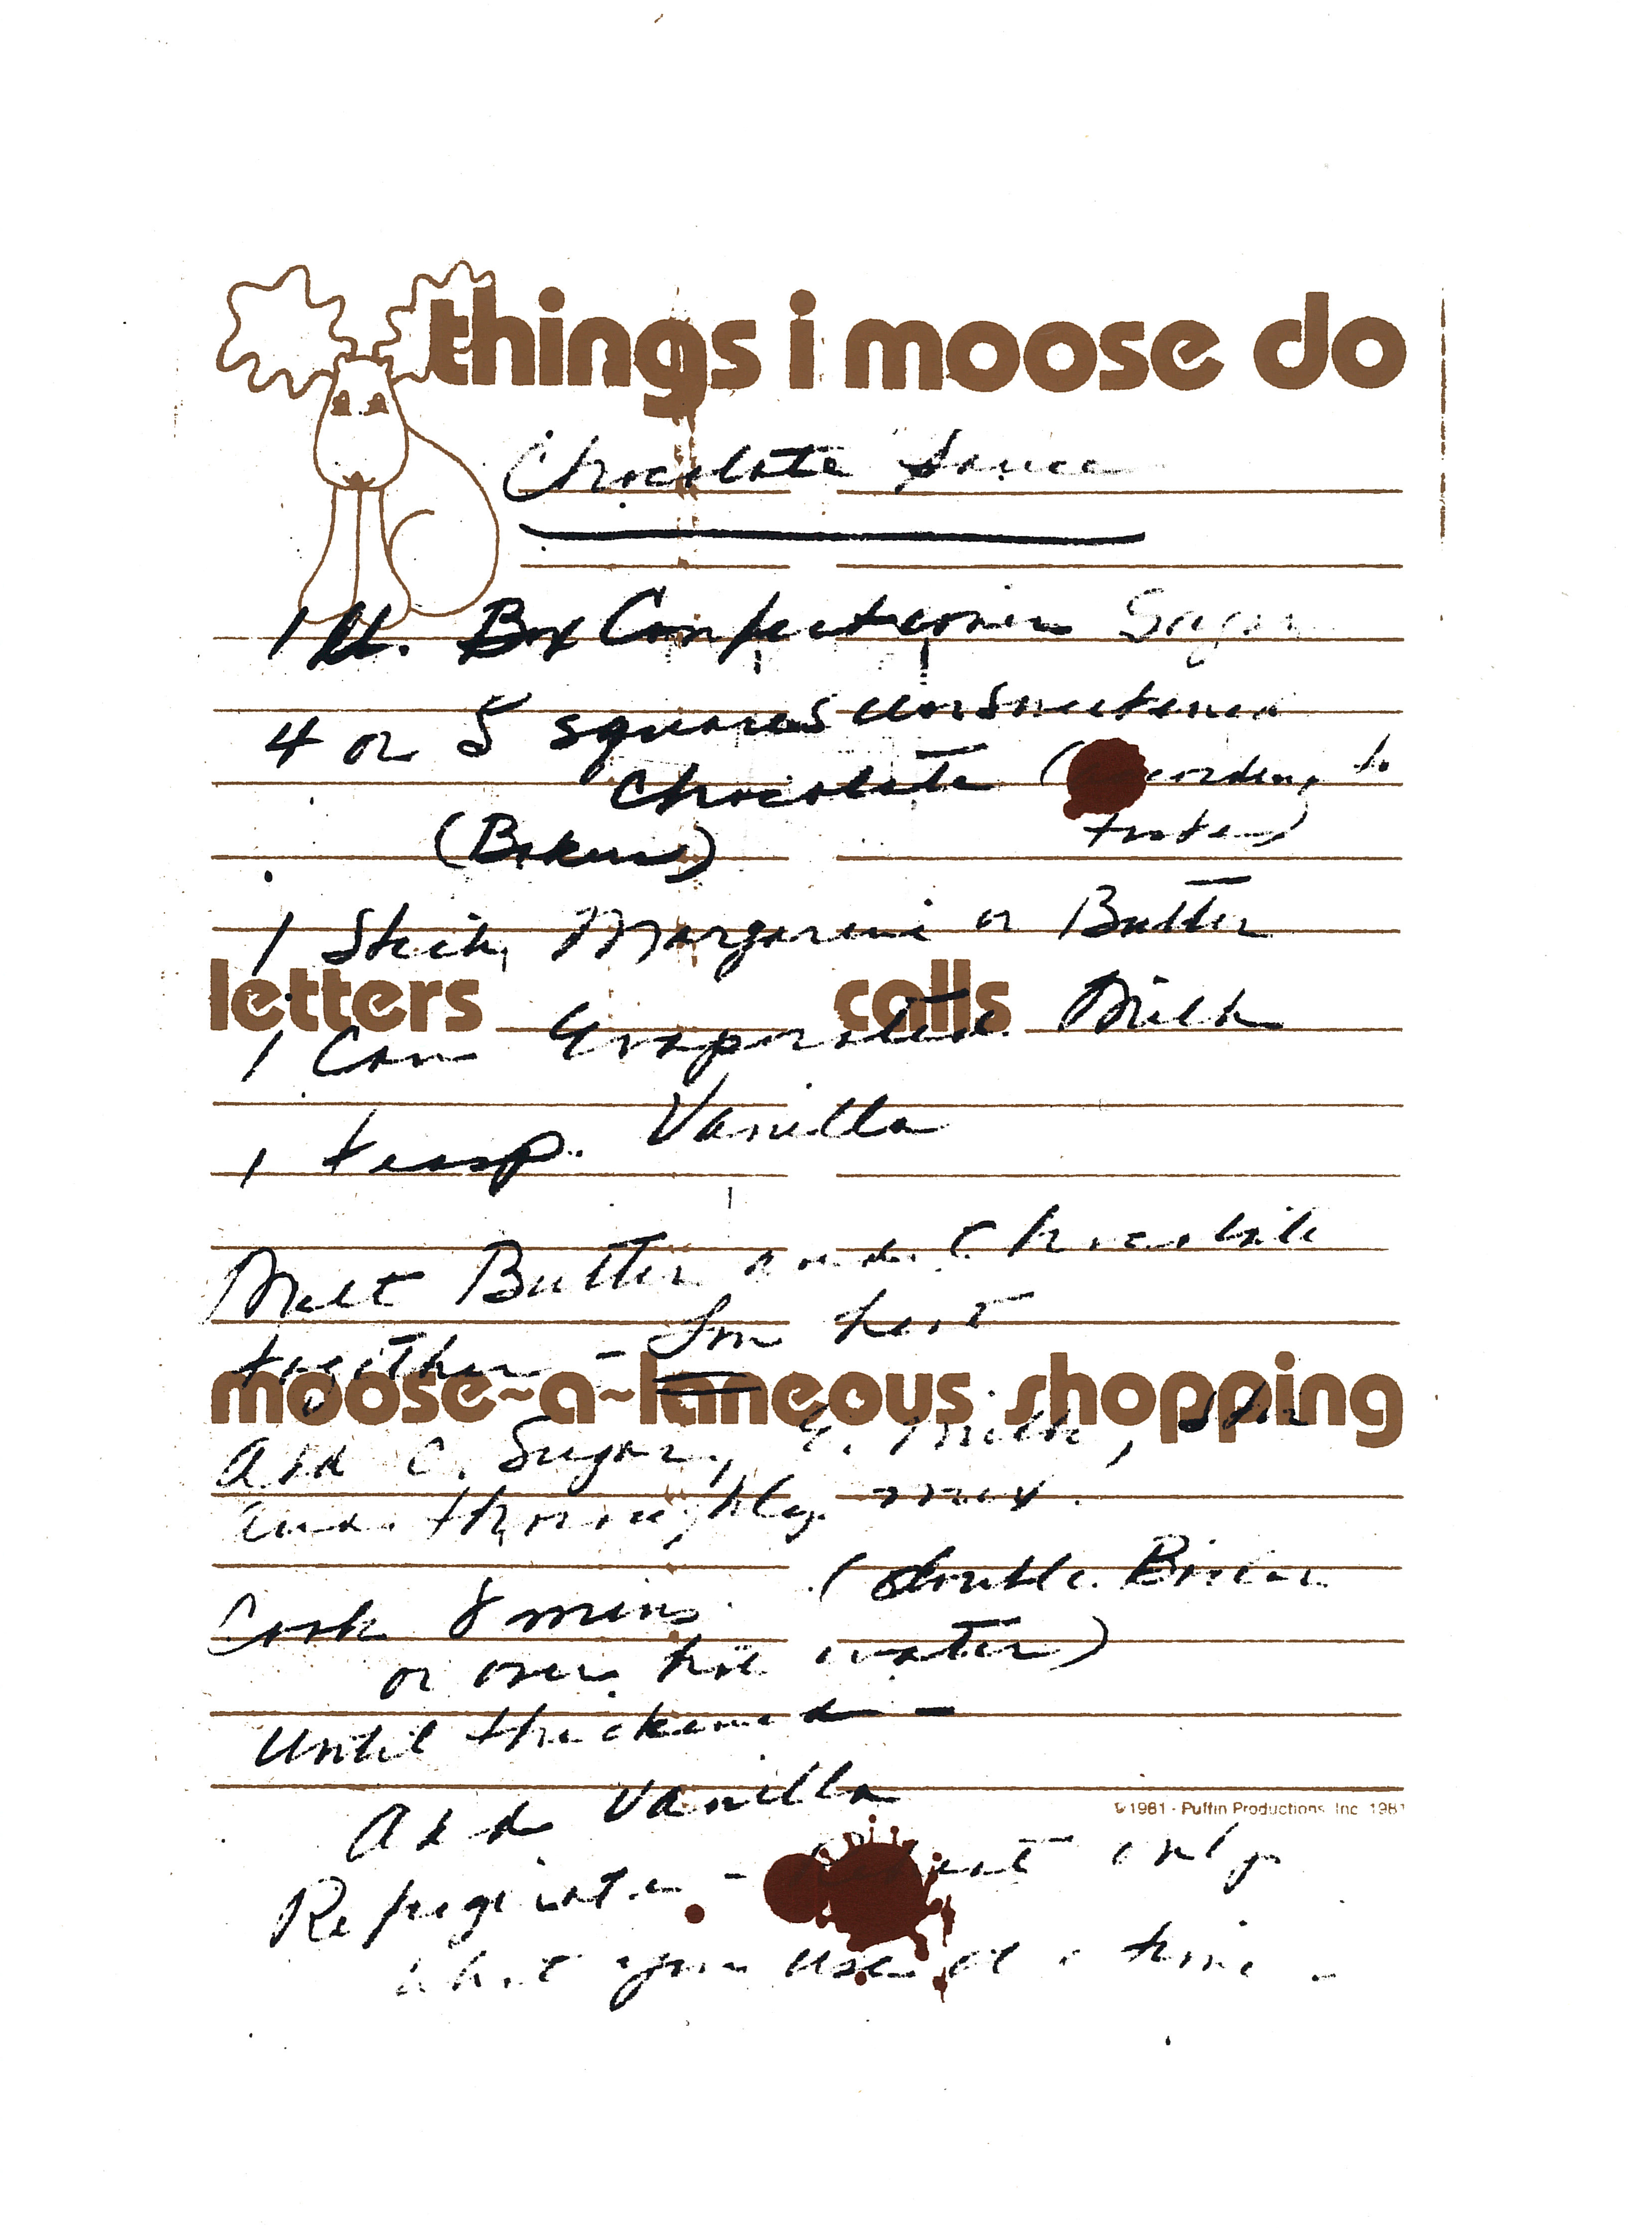 things i moose do
Chocolate Sauce
1 lb. Box Confectioners Sugar
4 or 5 squares unsweetened
Chocolate (according to
(Bakers) taste)
1 Stick Margarine or Butter
letters calls
1 Can Evaporated Milk
1 teasp. Vanilla
Melt Butter and Chocolate
together - Low heat
moose~a~laneous shopping
Add C. Sugar, E. Milk, stir
and thoroughly mix.
Cook 8 mins. (double Boiler
or over hot water)
Until thickened -
Add Vanilla
©1981 - Puffin Productions, Inc. 1981
Refrigerate - Reheat only
what you use at a time -